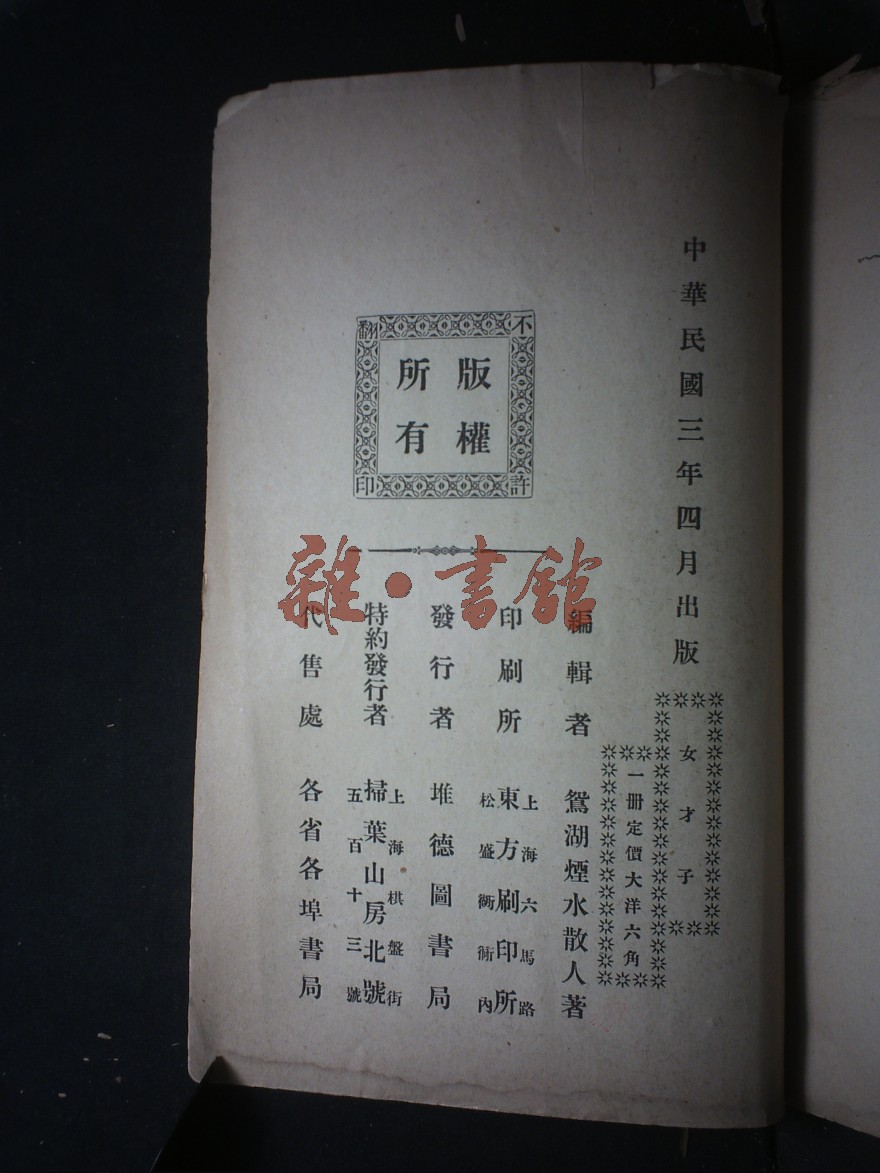 中華民國三年四月出版
女才子
一冊定價大洋六角
編輯者 鴛湖煙水散人著
印刷所 上海六馬路 東方刷印所 松盛衖衕內
發行者 堆德圖書局
特約發行者 上海棋盤街 掃葉山房北號 五百十三號
代售處 各省各埠書局
版權所有
不許翻印
雜·書館